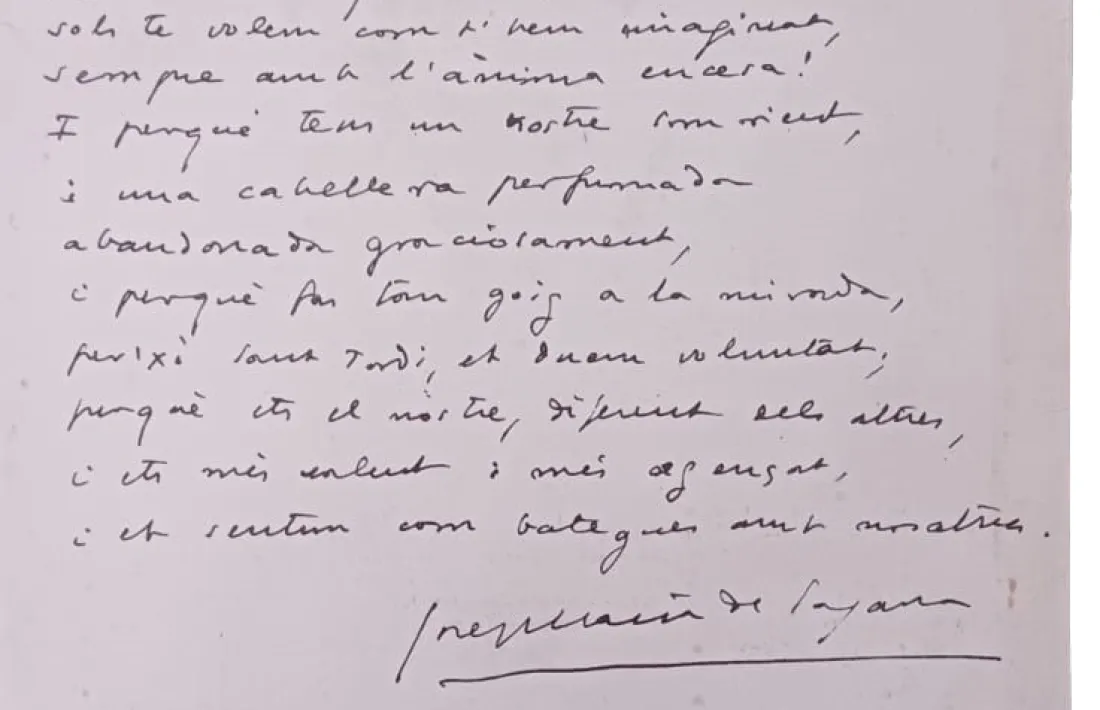 sols te volem com t'hem imaginat,
sempre amb l'ànima encesa!
I perquè tens un rostre somrient,
i una cabellera perfumada
abandonada graciosament,
i perquè fas tan goig a la mirada,
per'xò Sant Jordi, et duem voluntat;
perquè ets el nostre, diferent dels altres,
i ets més valent i més agençat,
i et sentim com bategues amb nosaltres.
Josep Maria de Sagarra